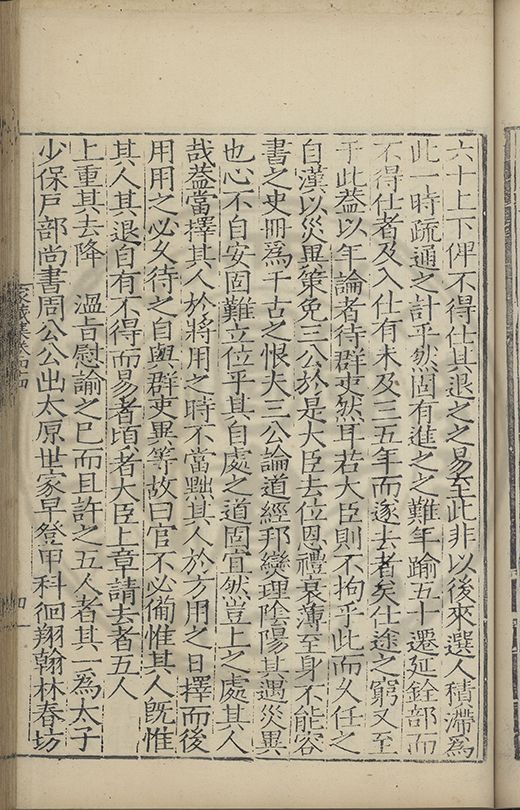 六十上下俾不得仕其退之之易至此非以後來選人積滯爲
此一時疏通之計乎然固有進之之難年踰五十遷延銓部而
不得仕者及入仕有未及三五年而遂去者矣仕途之窮又至
乎此蓋以年論者待群吏然耳若大臣則不拘乎此而久任之
自漢以災異策免三公於是大臣去位恩禮衰薄至身不能容
書之史冊爲千古之恨夫三公論道經邦爕理陰陽其遇災異
也心不自安固難立位乎其自處之道固宜然豈上之處其人
哉葢當擇其人於將用之時不當黜其人於方用之日擇而後
用用之必久待之自與群吏異等故曰官不必俻惟其人旣惟
其人其退自有不得而易者頃者大臣上章請去者五人
上重其去降　溫旨慰諭之巳而且許之五人者其一爲太子
少保戸部尚書周公公出太原世家早登甲科徊翔翰林春坊
家藏集卷四十四
四